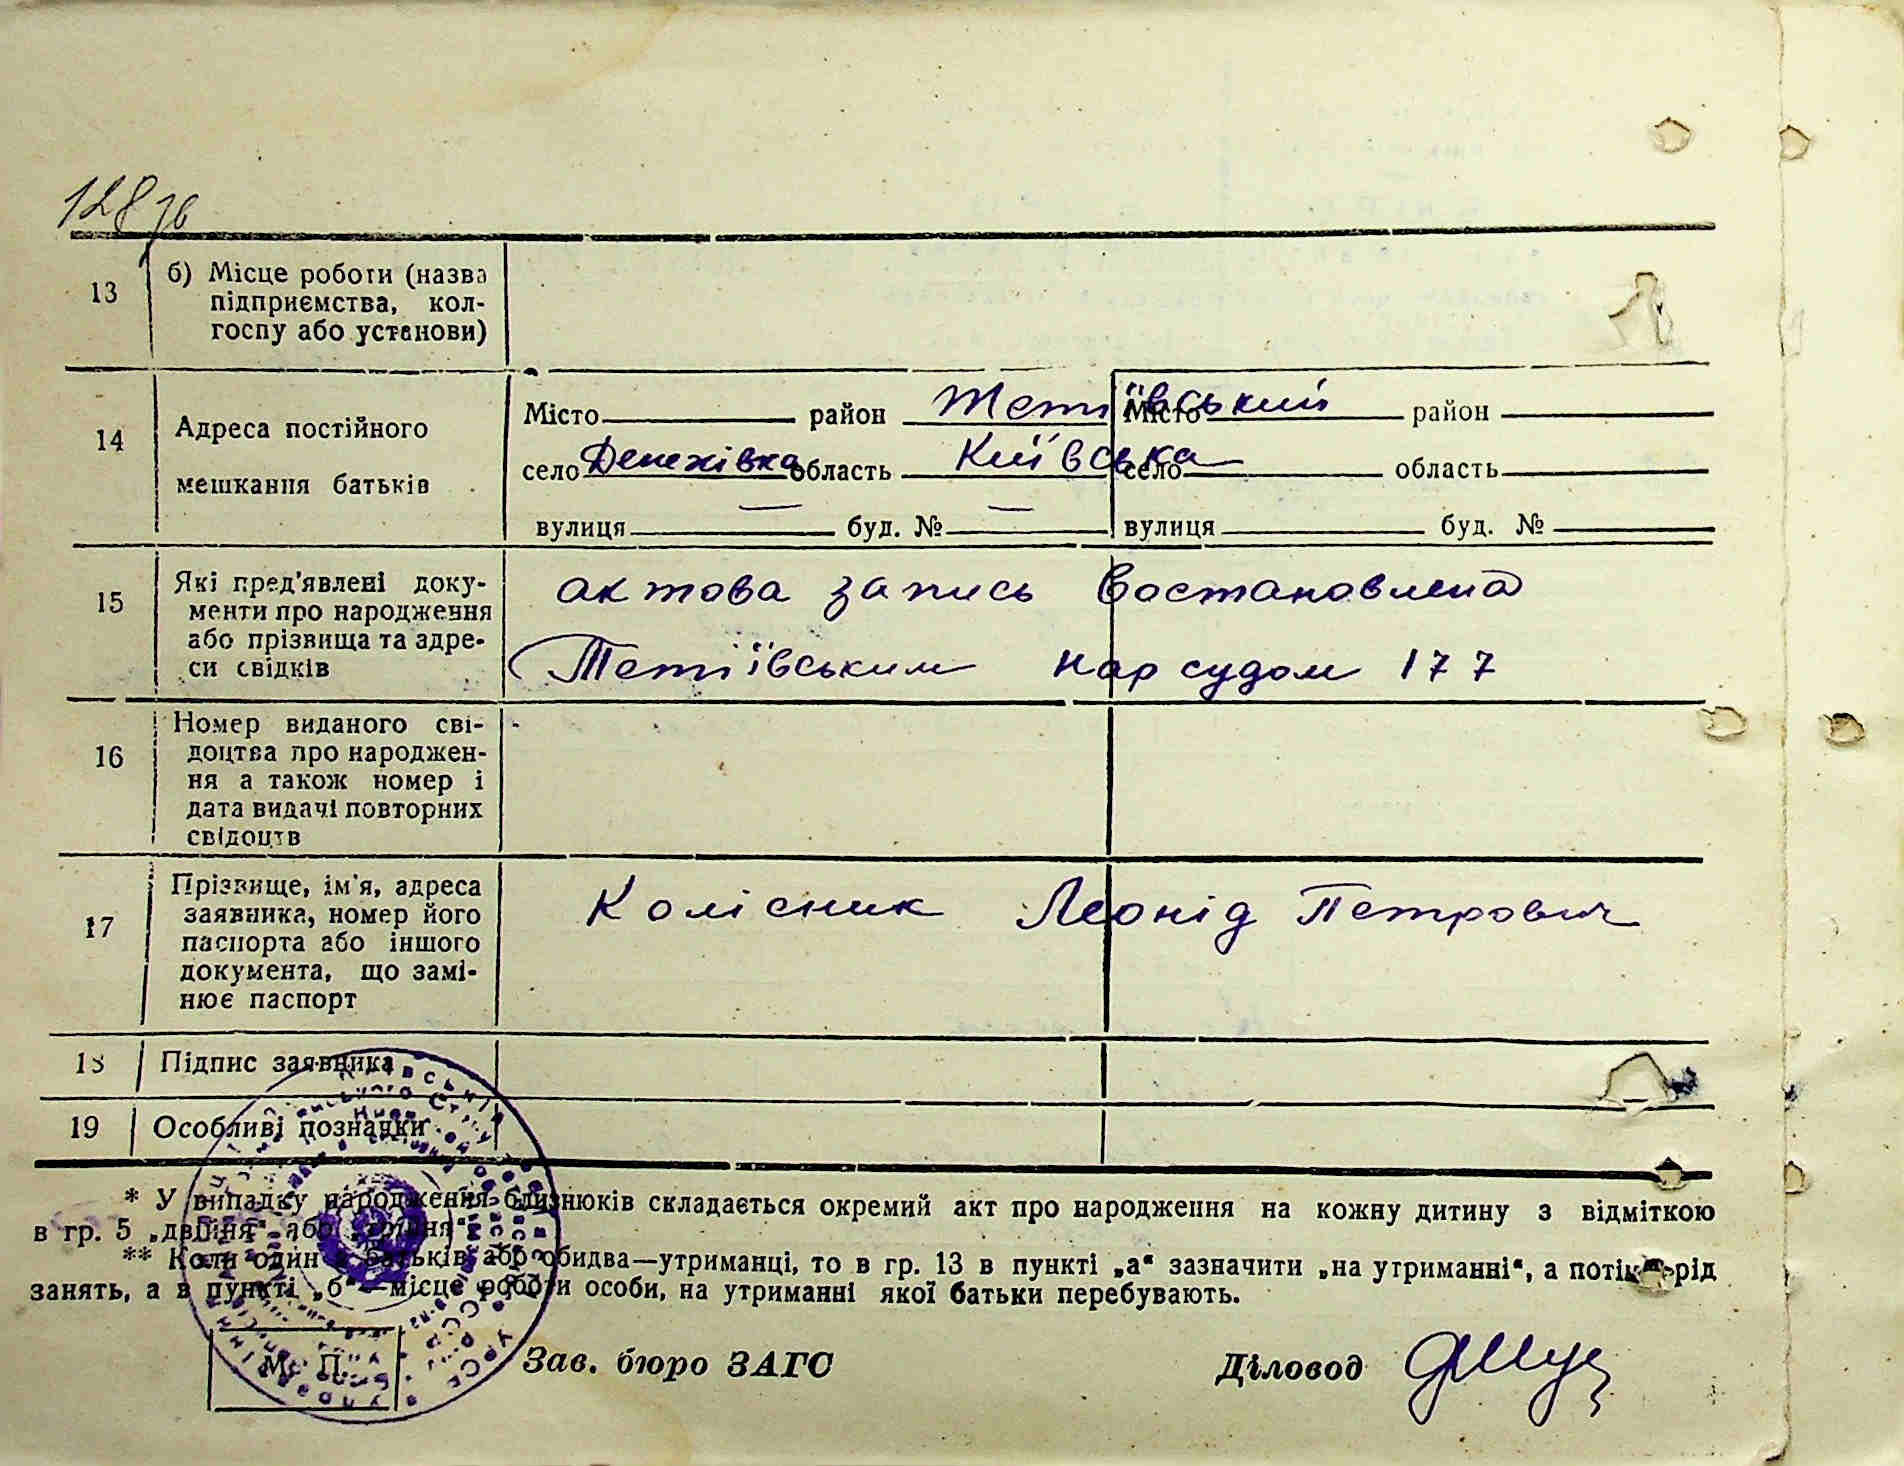 128 зв
13 б) Місце роботи (назва
підприємства, кол-
госпу або установи)
14 Адреса постійного
мешкання батьків
Місто район Тетіївський Місто район
село Денехівка область Київська село область
вулиця — буд. № — вулиця буд. №
15 Які пред'явлені доку-
менти про народження
або прізвища та адре-
си свідків
актова запись востановлена
Тетіївським нарсудом 177
16 Номер виданого сві-
доцтва про народжен-
ня а також номер і
дата видачі повторних
свідоцтв
17 Прізвище, ім'я, адреса
заявника, номер його
паспорта або іншого
документа, що замі-
нює паспорт
Колісник Леонід Петрович
18 Підпис заявника
19 Особливі позначки
* У випадку народження близнюків складається окремий акт про народження на кожну дитину з відміткою
в гр. 5 „двійня“ або „трійня“
** Коли один з батьків або обидва—утриманці, то в гр. 13 в пункті „а“ зазначити „на утриманні“, а потім—рід
занять, а в пункті „б“—місце роботи особи, на утриманні якої батьки перебувають.
М. П. Зав. бюро ЗАГС Діловод